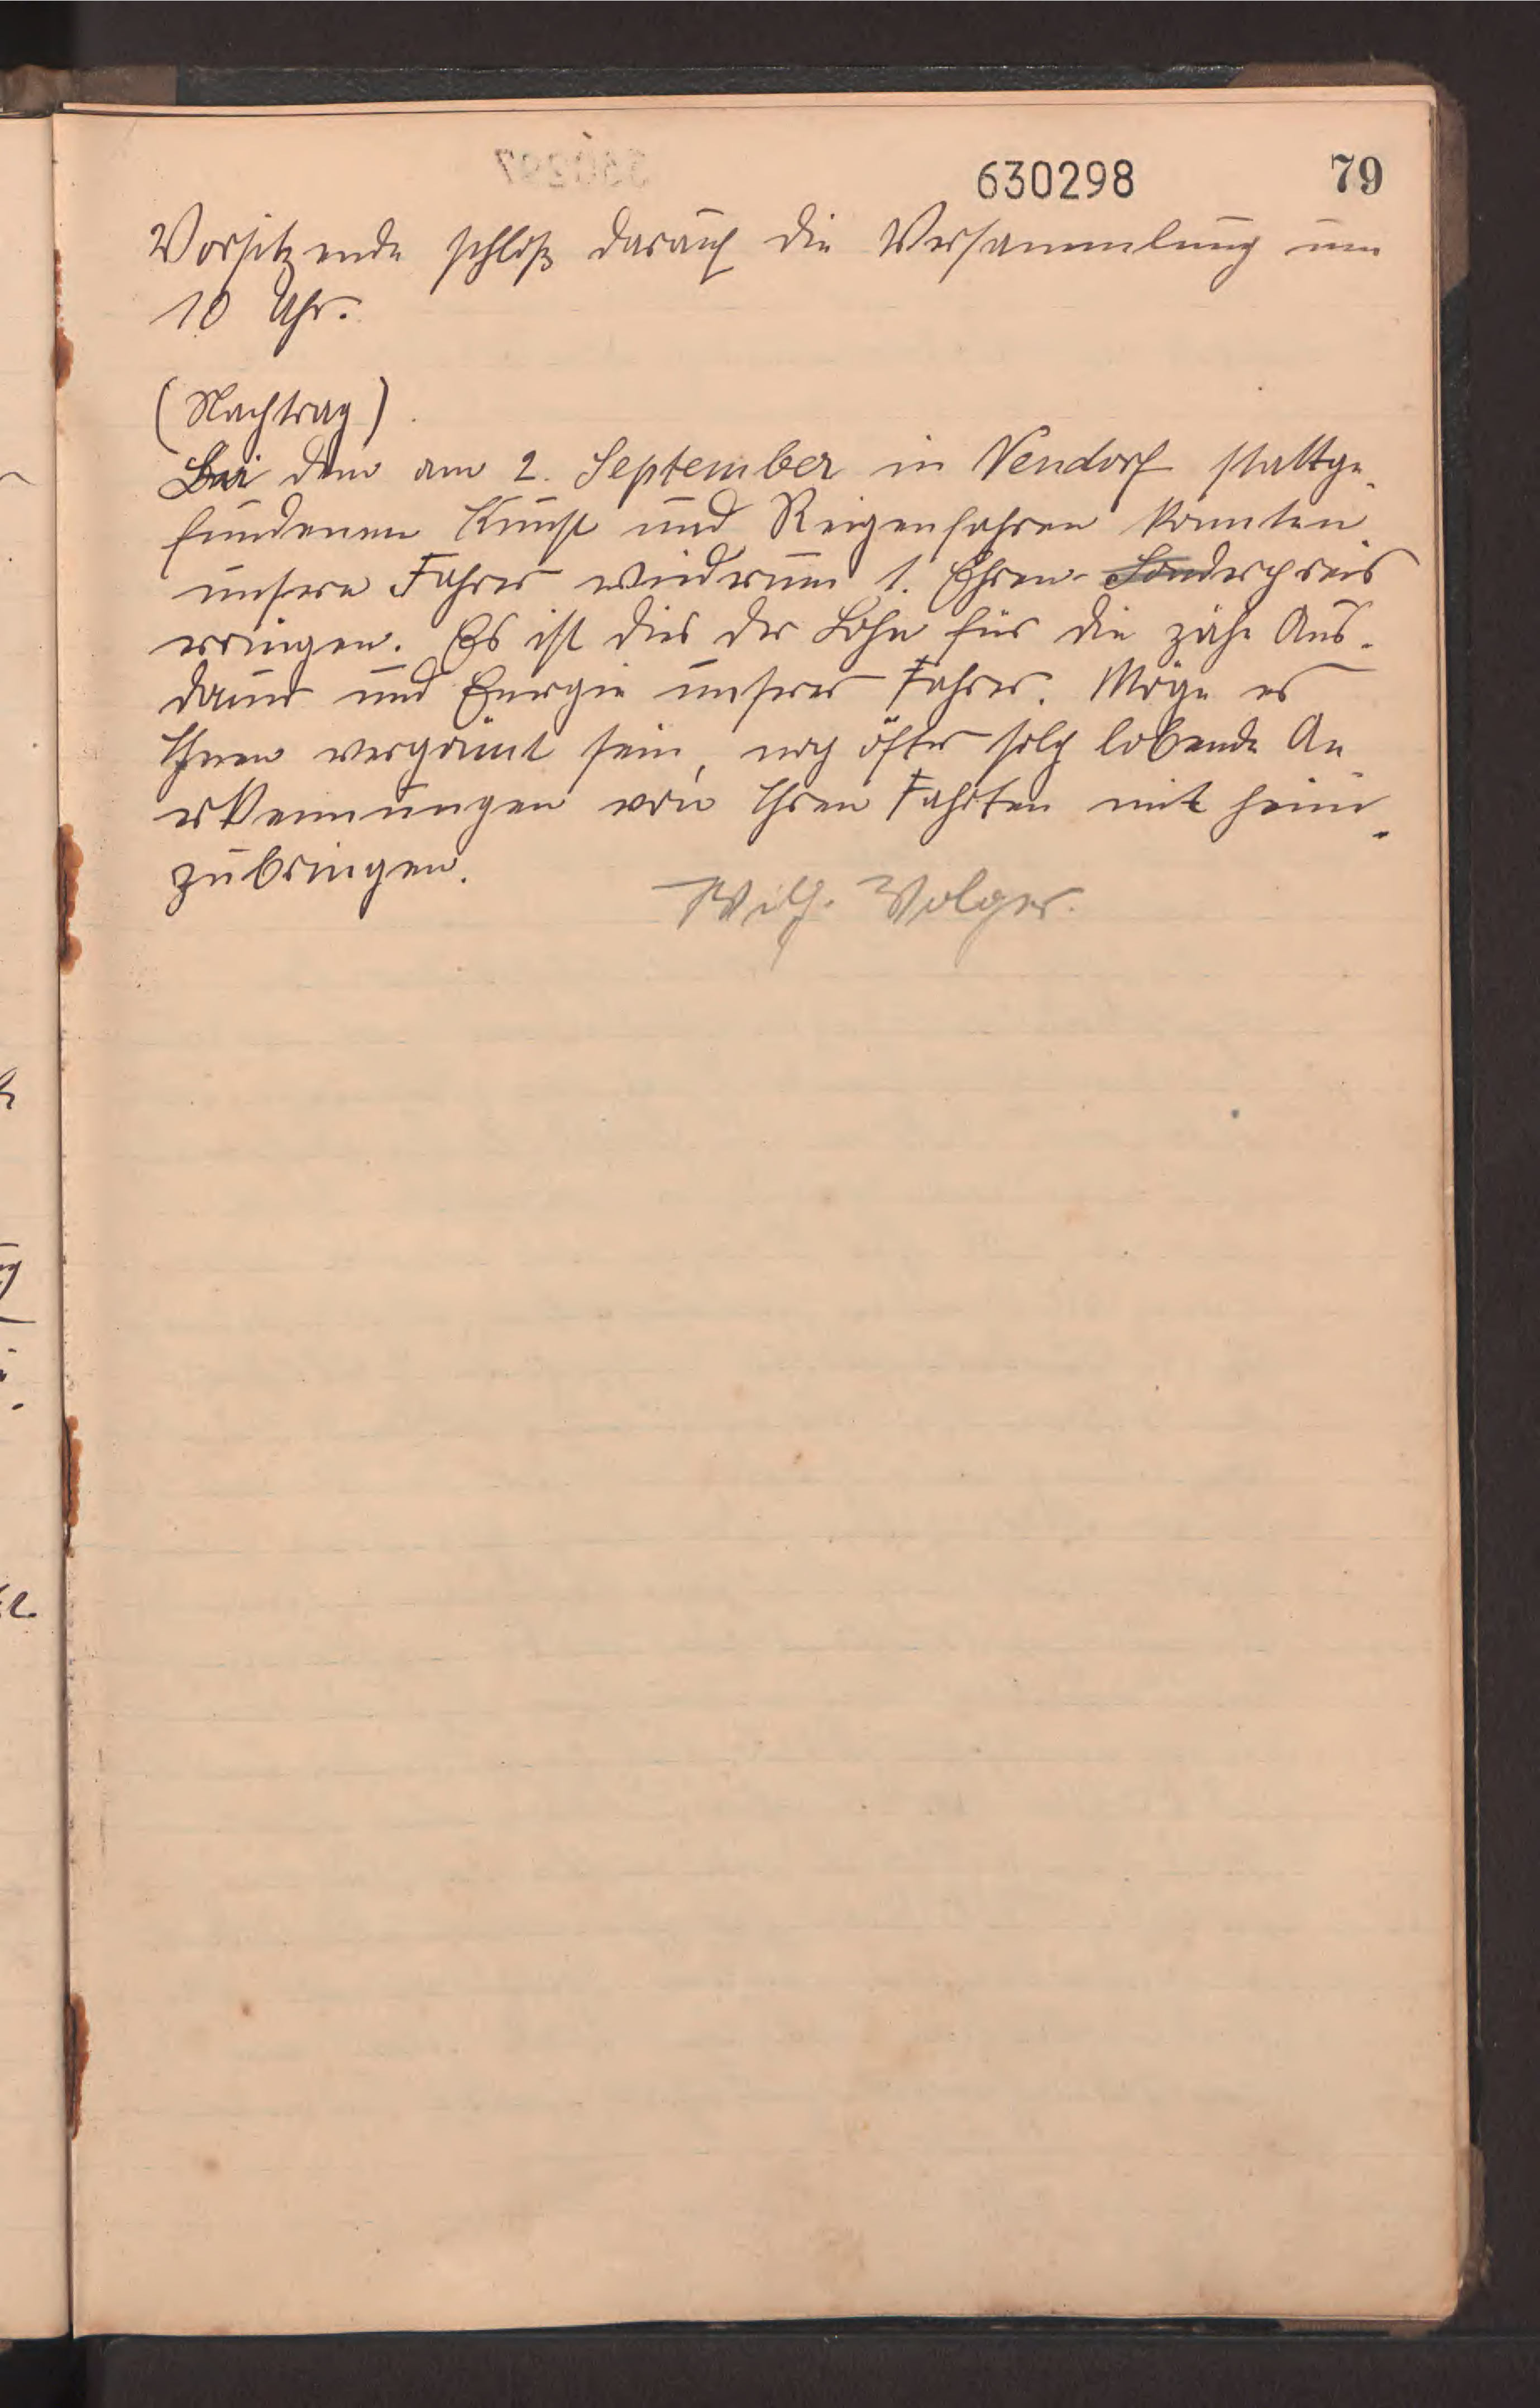 630298 79
Vorsitzende schloß darauf die Versammlung um
10 Uhr.
(Nachtrag)
Bei dem am 2. September in Nendorf stattge-
fundenen Kunst und Reigenfahren konnten
unsere Fahrer wiederum 1. Ehren- Sonderpreis
erringen. Es ist dies der Lohn für die zähe Aus-
dauer und Energie unserer Fahrer. Möge es
Ihnen vergönnt sein, noch öfter solch lobende An-
erkennungen von Ihren Fahrten mit heim-
zubringen.
Wilh. Volger.